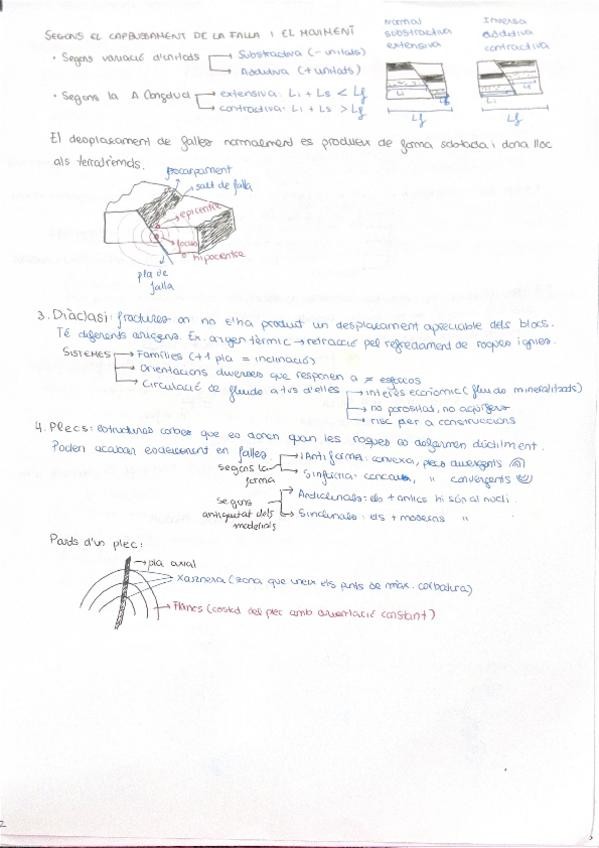 SEGONS EL CAPBUSSAMENT DE LA FALLA I EL MOVIMENT
• Segons variació d'unitats → Substractiva (- unitats)
→ Additiva (+ unitats)
• Segons la Δ Longitud → extensiva: Li + Ls < Lf
→ contractiva: Li + Ls > Lf
Normal
substractiva
extensiva
Lf
Inversa
additiva
contractiva
Li
Lf
El desplaçament de falles normalment es produeix de forma sobtada i dona lloc
als terratrèmols.
escarpament
salt de falla
epicentre
focus
hipocentre
pla de
falla
3. Diàclasi: fractures on no s'ha produit un desplaçament apreciable dels blocs.
Té diferents orígens. Ex. origen tèrmic → retracció pel refredament de roques ígnies.
SISTEMES → Famílies (++ pla = inclinació)
→ Orientacions diverses que responen a ≠ esforços
→ Circulació de fluids a tvs d'elles → interès econòmic (fluids mineralitzats)
→ no porositat, no aqüífers
→ risc per a construccions
4. Plecs: estructures corbes que es donen quan les roques es deformen dúctilment.
Poden acabar esdevenint en falles
segons la forma → Antiforma: convexa, plecs divergents
→ Sinforma: concava, " convergents
Segons antiguitat dels materials → Anticlinals: els + antics hi són al nucli.
→ Sinclinals: els + moderns "
Parts d'un plec:
→ pla axial
Xarnera (zona que uneix els punts de màx. corbatura)
→ Flancs (costat del plec amb orientació constant)
2